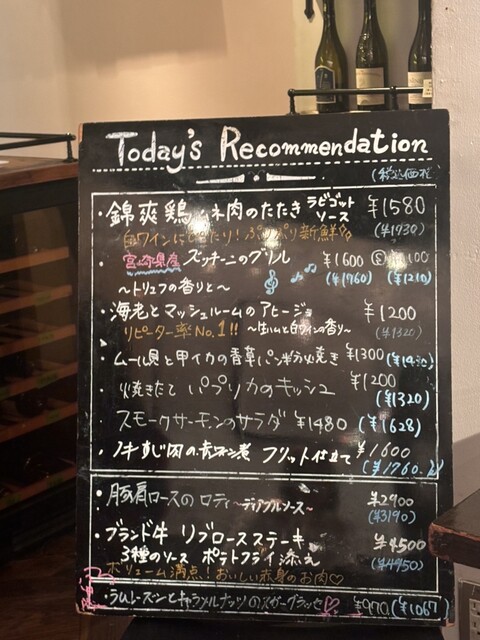 Today's Recommendation
(税込価格)
・錦爽鶏ムネ肉のたたき ラビゴットソース ¥1580
白ワインにぴったり！ぷりぷり新鮮 (¥1730)
・宮崎県産 ズッキーニのグリル ¥1600 Ⓢ 1100
～トリュフの香りと～ (¥1760) (¥1210)
・海老とマッシュルームのアヒージョ ¥1200
リピーター率No.1!! ～生ハムと白ワインの香り～ (¥1320)
・ムール貝と甲イカの香草パン粉焼き ¥1300 (¥1430)
・焼きたて パプリカのキッシュ ¥1200
(¥1320)
・スモークサーモンのサラダ ¥1480 (¥1628)
・牛すじ肉の赤ワイン煮 フリット仕立て ¥1600
(¥1760)
・豚肩ロースのロティ ～ディアブルソース～ ¥2900
(¥3190)
・ブランド牛 リブロースステーキ ¥4500
3種のソース ポテトフライ添え
ボリューム満点！おいしい赤身のお肉♡ (¥4950)
・ラムレーズンとキャラメルナッツの ¥970 (¥1067)